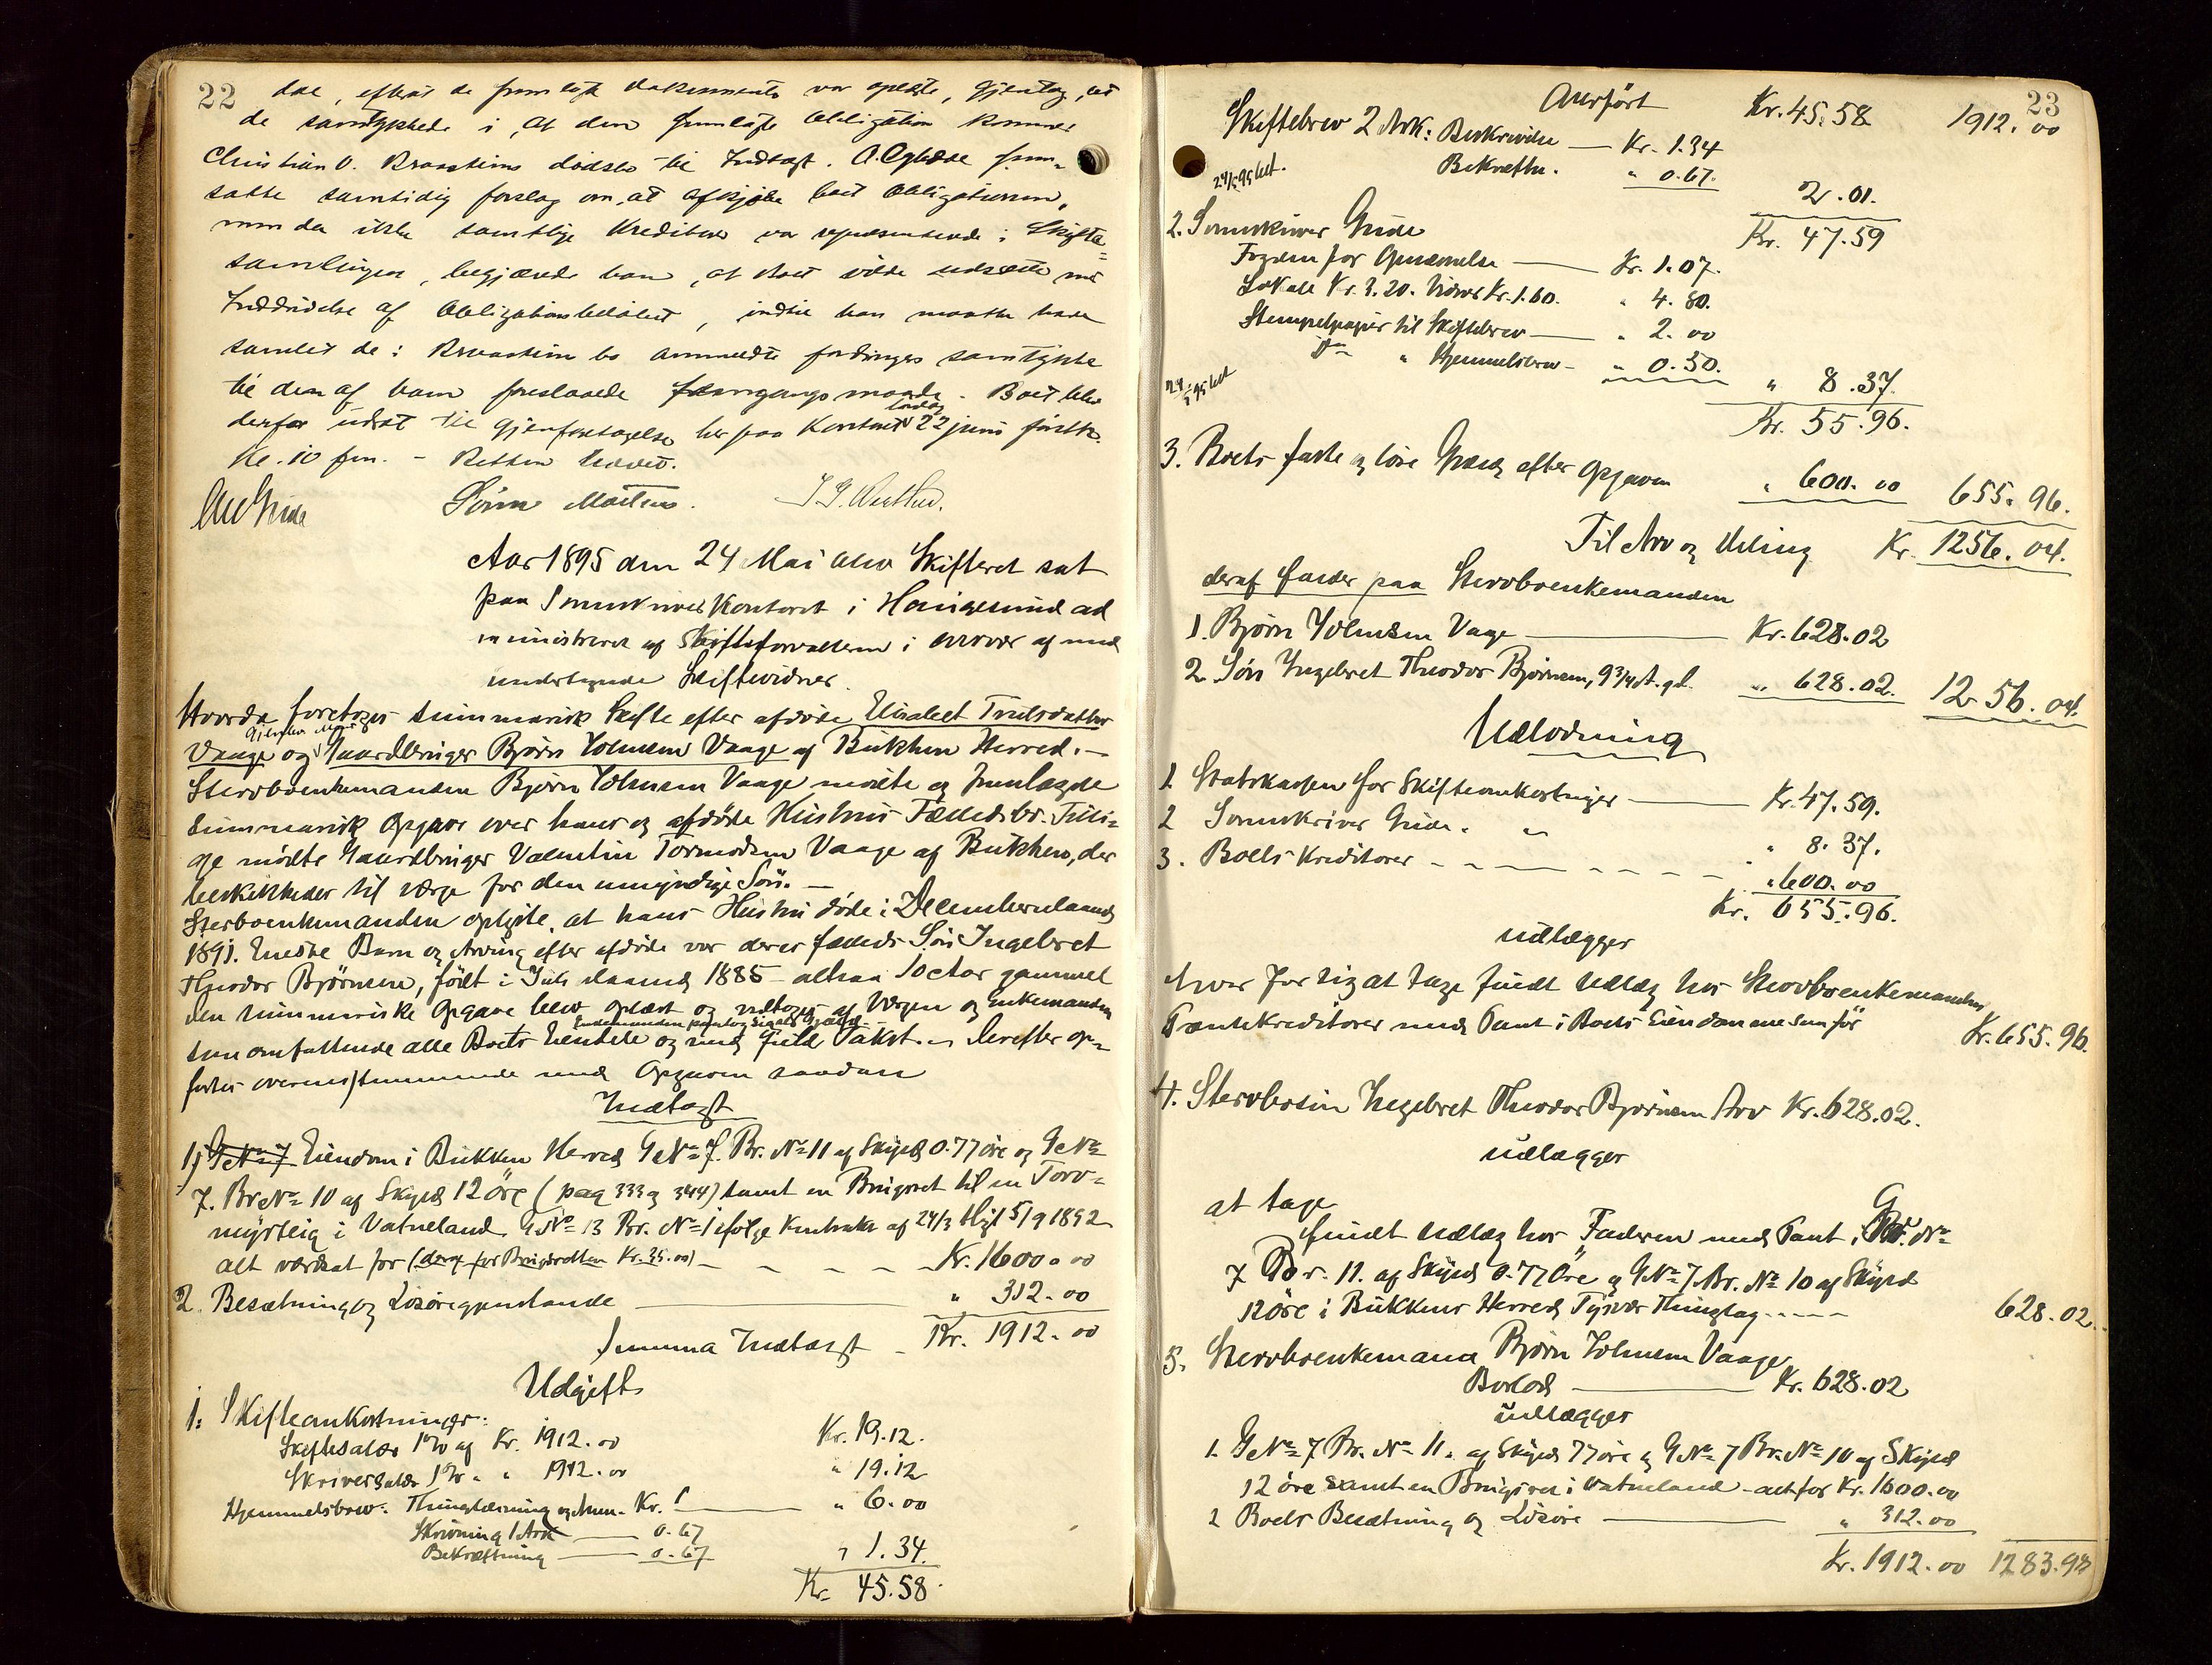 22
doe, efterat de fremlagte Dokumenter var oplæste, gjentog, at
de samtykkede i, at den fremlagte Obligation kommer
Christian O. Braasteins dödsbo til Indtægt. O. frem-
satte samtidig forslag om, at afkjöbe boet Obligationen,
men da ikke samtlige Kreditorer var repræsenterede i Skifte-
samlingen, begjærede han, at boet vilde udsætte med
Inddrivelse af Obligationsbelöbet, indtil han maatte have
samlet de i bo anmeldte fordringers samtykke
til den af ham foreslaaede fremgangsmaade. Boet blev
derfor udsat til gjenforetagelse her paa Kontoret lördag 22 juni förstk.
Kl. 10 fm. - Retten hævet.
Sören Mortens.
Aar 1895 den 24 Mai blev Skifteret sat
paa Sorenskriverkontoret i Haugesund ad
ministreret af Skifteforvalteren i overvær af med
undertegnede Skiftevidner.
Hvorda foretoges summarisk Skifte efter afdöde Elisabet Trulsdatter
Vaage og Gjenlev. Mand Gaardbruger Björn Johnsen Vaage af Bukken Herred. -
Stervboenkemanden Björn Johnsen Vaage mödte og fremlagde
Summarisk Opgave over hans og afdöde Hustrus Fællesbo. Tilli-
ge mödte Gaardbruger Valentin Tormodsen Vaage af Bukken, der
beskikkedes til værge for den umyndige Sön. -
Sterboenkemanden oplyste, at hans Hustru döde i Decembermaaned
1891. Eneste Barn og Arving efter afdöde var deres fælleds Sön Ingebret
Theodor Björnsen, födt i Juli Maaned 1885 - altsaa 10 Aar gammel
Den summariske Opgave blev oplæst og vedtoges af Værgen og Enkemanden
Enkemanden paatog sig al Gjæld -
som omfattende alle Boets Eiendele og med fuld Takst. - Derefter op-
førtes overensstemmende med Opgaven saadan
Indtægt
1) G No 7 Eiendom i Bukken Herred G No 7. Br. No 11 af Skyld 0.77 öre og G No
7. Br No 10 af Skyld 12 öre (pag 333 og 344) samt en Brugsret til en Torv-
myrteig i Vatneland G No 13 Br. No 1 ifölge Kontrakt af 24/3 tlyst 5/9 1892
alt værdsat for (deraf for Brugsretten Kr. 35.00) - - - - Kr. 1600.00
2. Besætning og Lösöregjenstande " 312.00
Summa Indtægt - Kr. 1912.00
Udgift
1. Skifteomkostninger:
Skiftesalær 1% af Kr. 1912.00 Kr. 19.12.
Skriversalær 1% " " 1912.00 " 19.12
Hjemmelsbrev: Thinglæsning og Anm. Kr. 1 " 6.00
Skrivning 1 Ark 0.67
Bekræftning 0.67 " 1.34.
Kr. 45.58.
23
Overfört Kr. 45.58 1912.00
Skiftebrev 2 Ark: Beskrivelse Kr. 1.34
Bekræftn. " 0.67. 2.01.
24/5 95 bet.
Kr. 47.59
2. Sorenskriver Gude
Fogden for Opnævnelse Kr. 1.07.
Lokale Kr. 3.20. Vidner Kr. 1.60. " 4.80.
Stempelpapir til Skiftebrev " 2.00
Do " Hjemmelsbrev - " 0.50. " 8.37.
24/5 95 bet
Kr. 55.96.
3. Boets faste og löse Gjæld efter Opgaven " 600.00 655.96.
Til Arv og Deling Kr. 1256.04.
deraf falder paa Stervboenkemanden
1. Björn Johnsen Vaage Kr. 628.02
2. Sön Ingebret Theodor Björnsen, 9 3/4 A. gl. " 628.02. 1256.04.
Udlodning
1. Statskassen for Skifteomkostninger Kr. 47.59.
2 Sorenskriver Gude. " " 8.37.
3. Boets Kreditorer - - - - - " 600.00
Kr. 655.96.
udlægges
hver for sig at tage fuldt Udlæg hos Stervboenkemanden
Panteskreditorer med Pant i Boets Eiendomme som för Kr. 655.96.
4. Stervbosön Ingebret Theodor Björnsen Arv Kr. 628.02.
udlægges
at tage
fuldt Udlæg hos Faderen med Pant i G. No
7 Br. 11. af Skyld 0.77 Öre og G No 7 Br. No 10 af Skyld
12 öre i Bukkens Herred Tysvær Thinglag - - - - 628.02.
5. Stervboenkemand Björn Johnsen Vaage
Boslod Kr. 628.02
udlægges
1. G No 7 Br. No 11. af Skyld 77 öre og G No 7 Br. No 10 af Skyld
12 öre samt en Brugsret i Vatneland - alt for Kr. 1600.00
2 Boets Besætning og Lösöre " 312.00
Kr. 1912.00 1283.98